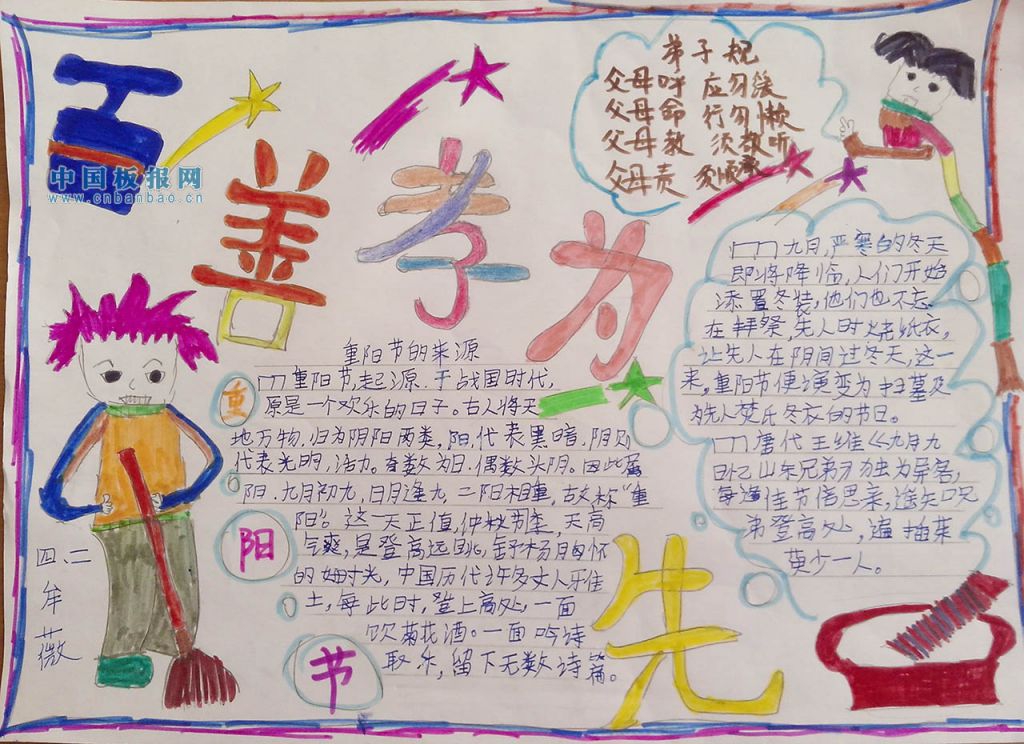 百善孝为先
中国板报网
www.cnbanbao.cn
弟子规
父母呼 应勿缓
父母命 行勿懒
父母教 须敬听
父母责 须顺承
重阳节的来源
重阳节,起源于战国时代,
原是一个欢乐的日子。古人将天
地万物归为阴阳两类,阳代表黑暗,阴则
代表光明,活力。奇数为日,偶数为阴。因此
阳,九月初九,日月逢九,二阳相重,故称“重
阳”。这一天正值仲秋节季,天高
气爽,是登高远眺,舒杨胸怀
的好时光,中国历代许多文人
士,每此时,登上高处,一面
饮菊花酒。一面吟诗
取乐,留下无数诗篇。
重
阳
节
九月,严寒的冬天
即将降临,人们开始
添置冬装,他们也不忘
在拜祭先人时烧纸衣,
让先人在阴间过冬天,这一
来,重阳节便演变为扫墓及
为先人焚氏冬衣的节日。
唐代王维《九月九
日忆山东兄弟》独为异客,
每逢佳节倍思亲,遥知兄
弟登高处,遍插茱
萸少一人。
四、二
牟
薇